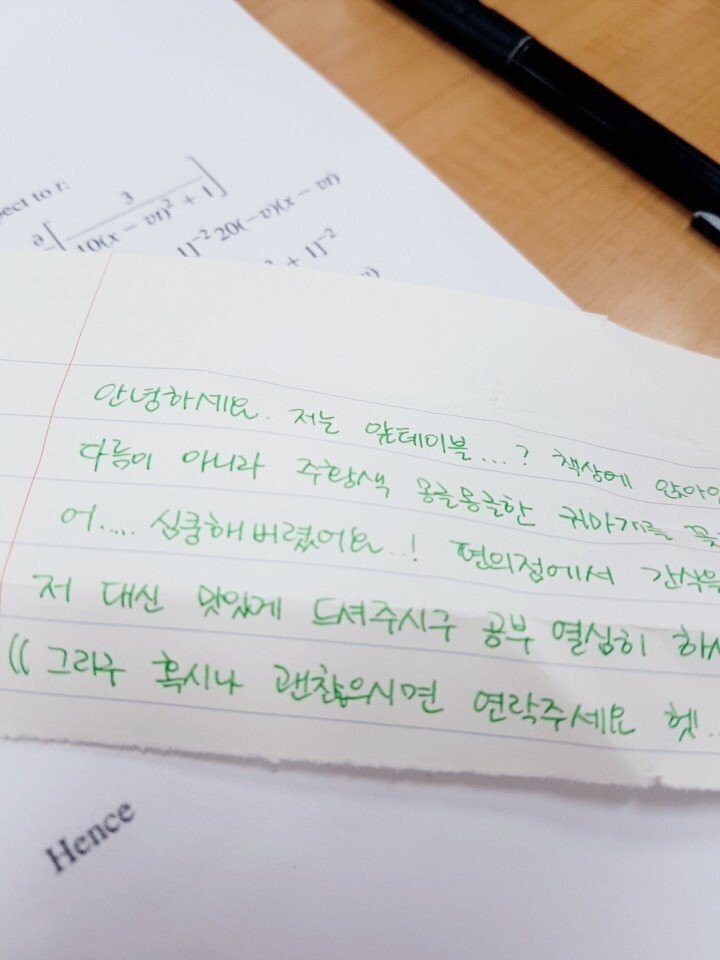 pect to t:
∂ [ 3 / 10(x − vt)² + 1 ]
1]⁻² 20(−v)(x − vt)
+ 1]⁻²
안녕하세요. 저는 앞테이블...? 책상에 앉아
다름이 아니라 주황색 몽글몽글한 귀마개를
어..... 심쿵해버렸어요..! 편의점에서 간식을
저 대신 맛있게 드셔주시구 공부 열심히 하
(( 그리구 혹시나 괜찮으시면 연락주세요 헷..
Hence